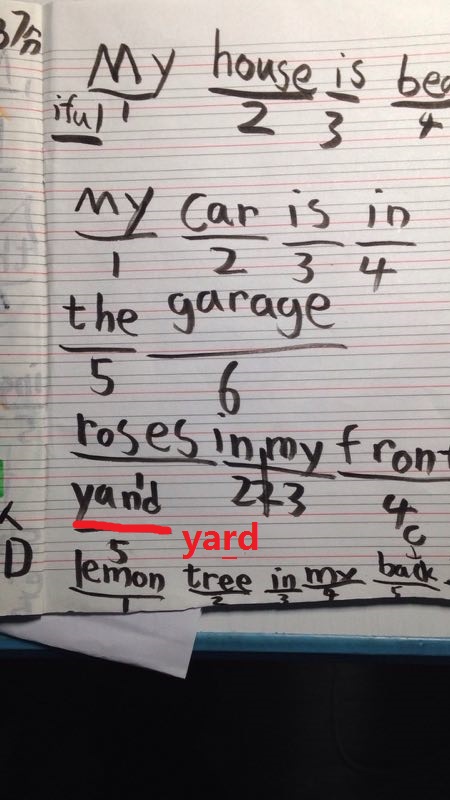 37分
My house is bea
iful 1 2 3 4
My car is in
1 2 3 4
the garage
5 6
roses in my front
yand 1 2 3 4
5 yard c
D
lemon tree in my back
1 2 3 4 5